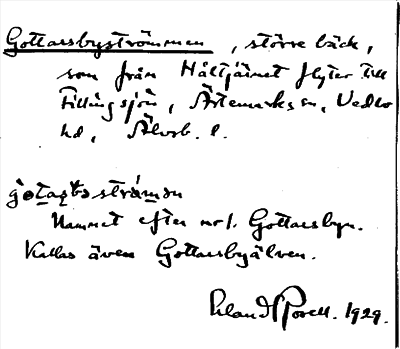 Gottarsbyströmmen, större bäck,
som från Håltjärnet flyter till
Tillingsjön, Ärtemarks sn, Vedbo
hd, Älvsb. l.
Namnet efter no 1. Gottarsbyn.
Kallas även Gottarsbyälven.
Erland Borell. 1929.